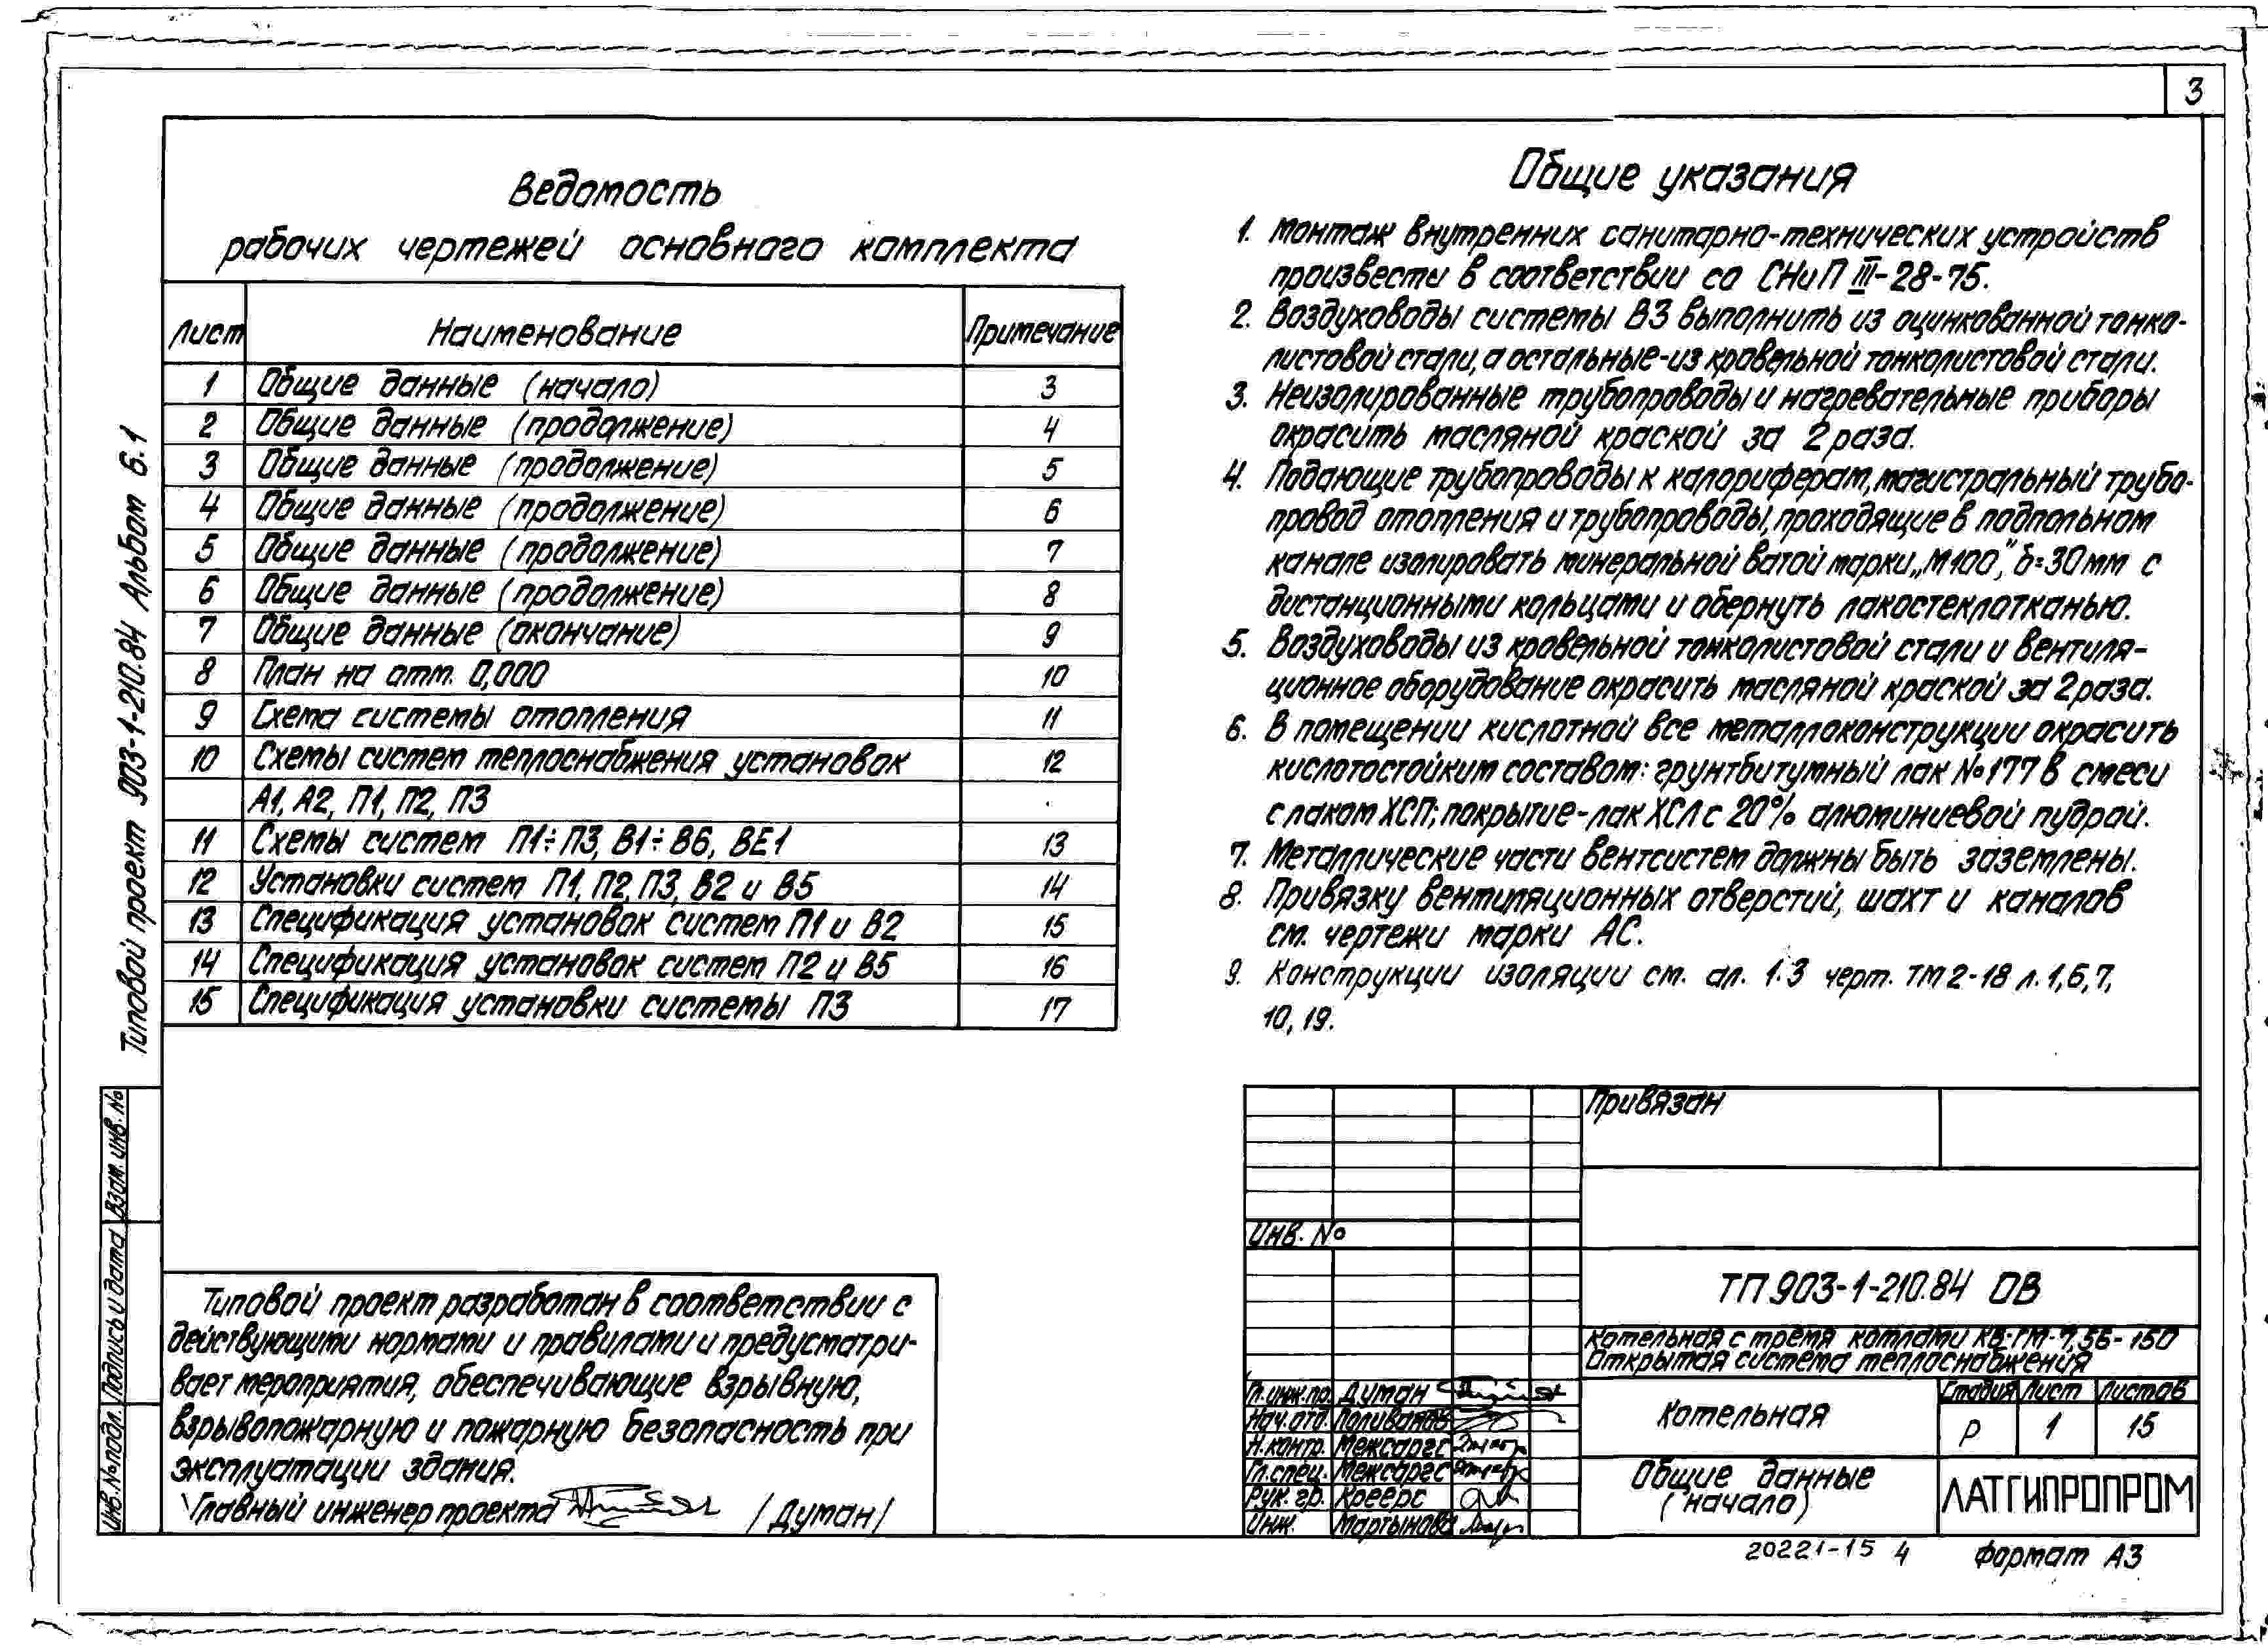 3
Ведомость
рабочих чертежей основного комплекта
Лист Наименование Примечание
1 Общие данные (начало) 3
2 Общие данные (продолжение) 4
3 Общие данные (продолжение) 5
4 Общие данные (продолжение) 6
5 Общие данные (продолжение) 7
6 Общие данные (продолжение) 8
7 Общие данные (окончание) 9
8 План на отм. 0,000 10
9 Схема системы отопления 11
10 Схемы систем теплоснабжения установок 12
А1, А2, П1, П2, П3
11 Схемы систем П1÷П3, В1÷В6, ВЕ1 13
12 Установки систем П1, П2, П3, В2 и В5 14
13 Спецификация установок систем П1 и В2 15
14 Спецификация установок систем П2 и В5 16
15 Спецификация установки системы П3 17
Общие указания
1. Монтаж внутренних санитарно-технических устройств
произвести в соответствии со СНиП III-28-75.
2. Воздуховоды системы В3 выполнить из оцинкованной тонко-
листовой стали, а остальные-из кровельной тонколистовой стали.
3. Неизолированные трубопроводы и нагревательные приборы
окрасить масляной краской за 2 раза.
4. Подающие трубопроводы к калориферам, магистральный трубо-
провод отопления и трубопроводы, проходящие в подпольном
канале изолировать минеральной ватой марки „М100”, δ=30мм с
дистанционными кольцами и обернуть лакостеклотканью.
5. Воздуховоды из кровельной тонколистовой стали и вентиля-
ционное оборудование окрасить масляной краской за 2 раза.
6. В помещении кислотной все металлоконструкции окрасить
кислотостойким составом: грунтбитумный лак №177 в смеси
с лаком ХСП; покрытие-лак ХСЛ с 20% алюминиевой пудрой.
7. Металлические части вентсистем должны быть заземлены.
8. Привязку вентиляционных отверстий, шахт и каналов
см. чертежи марки АС.
9. Конструкции изоляции см. ал. 1.3 черт. ТМ2-18 л. 1, 6, 7,
10, 19.
Типовой проект 903-1-210.84 Альбом 6.1
Взам. инв. №
Подпись и дата
Инв. № подл.
Типовой проект разработан в соответствии с
действующими нормами и правилами и предусматри-
вает мероприятия, обеспечивающие взрывную,
взрывопожарную и пожарную безопасность при
эксплуатации здания.
Главный инженер проекта /Думан/
Привязан
Инв. №
ТП 903-1-210.84 ОВ
Котельная с тремя котлами КВ-ГМ-7,56-150
Открытая система теплоснабжения
Гл.инж.пр. Думан
Нач.отд. Поливанов
Н.контр. Межсаргс
Гл.спец. Межсаргс
Рук. гр. Креерс
Инж. Мартынова
Котельная
Стадия Лист Листов
Р 1 15
Общие данные
(начало)
ЛАТГИПРОПРОМ
20221-15 4
Формат А3